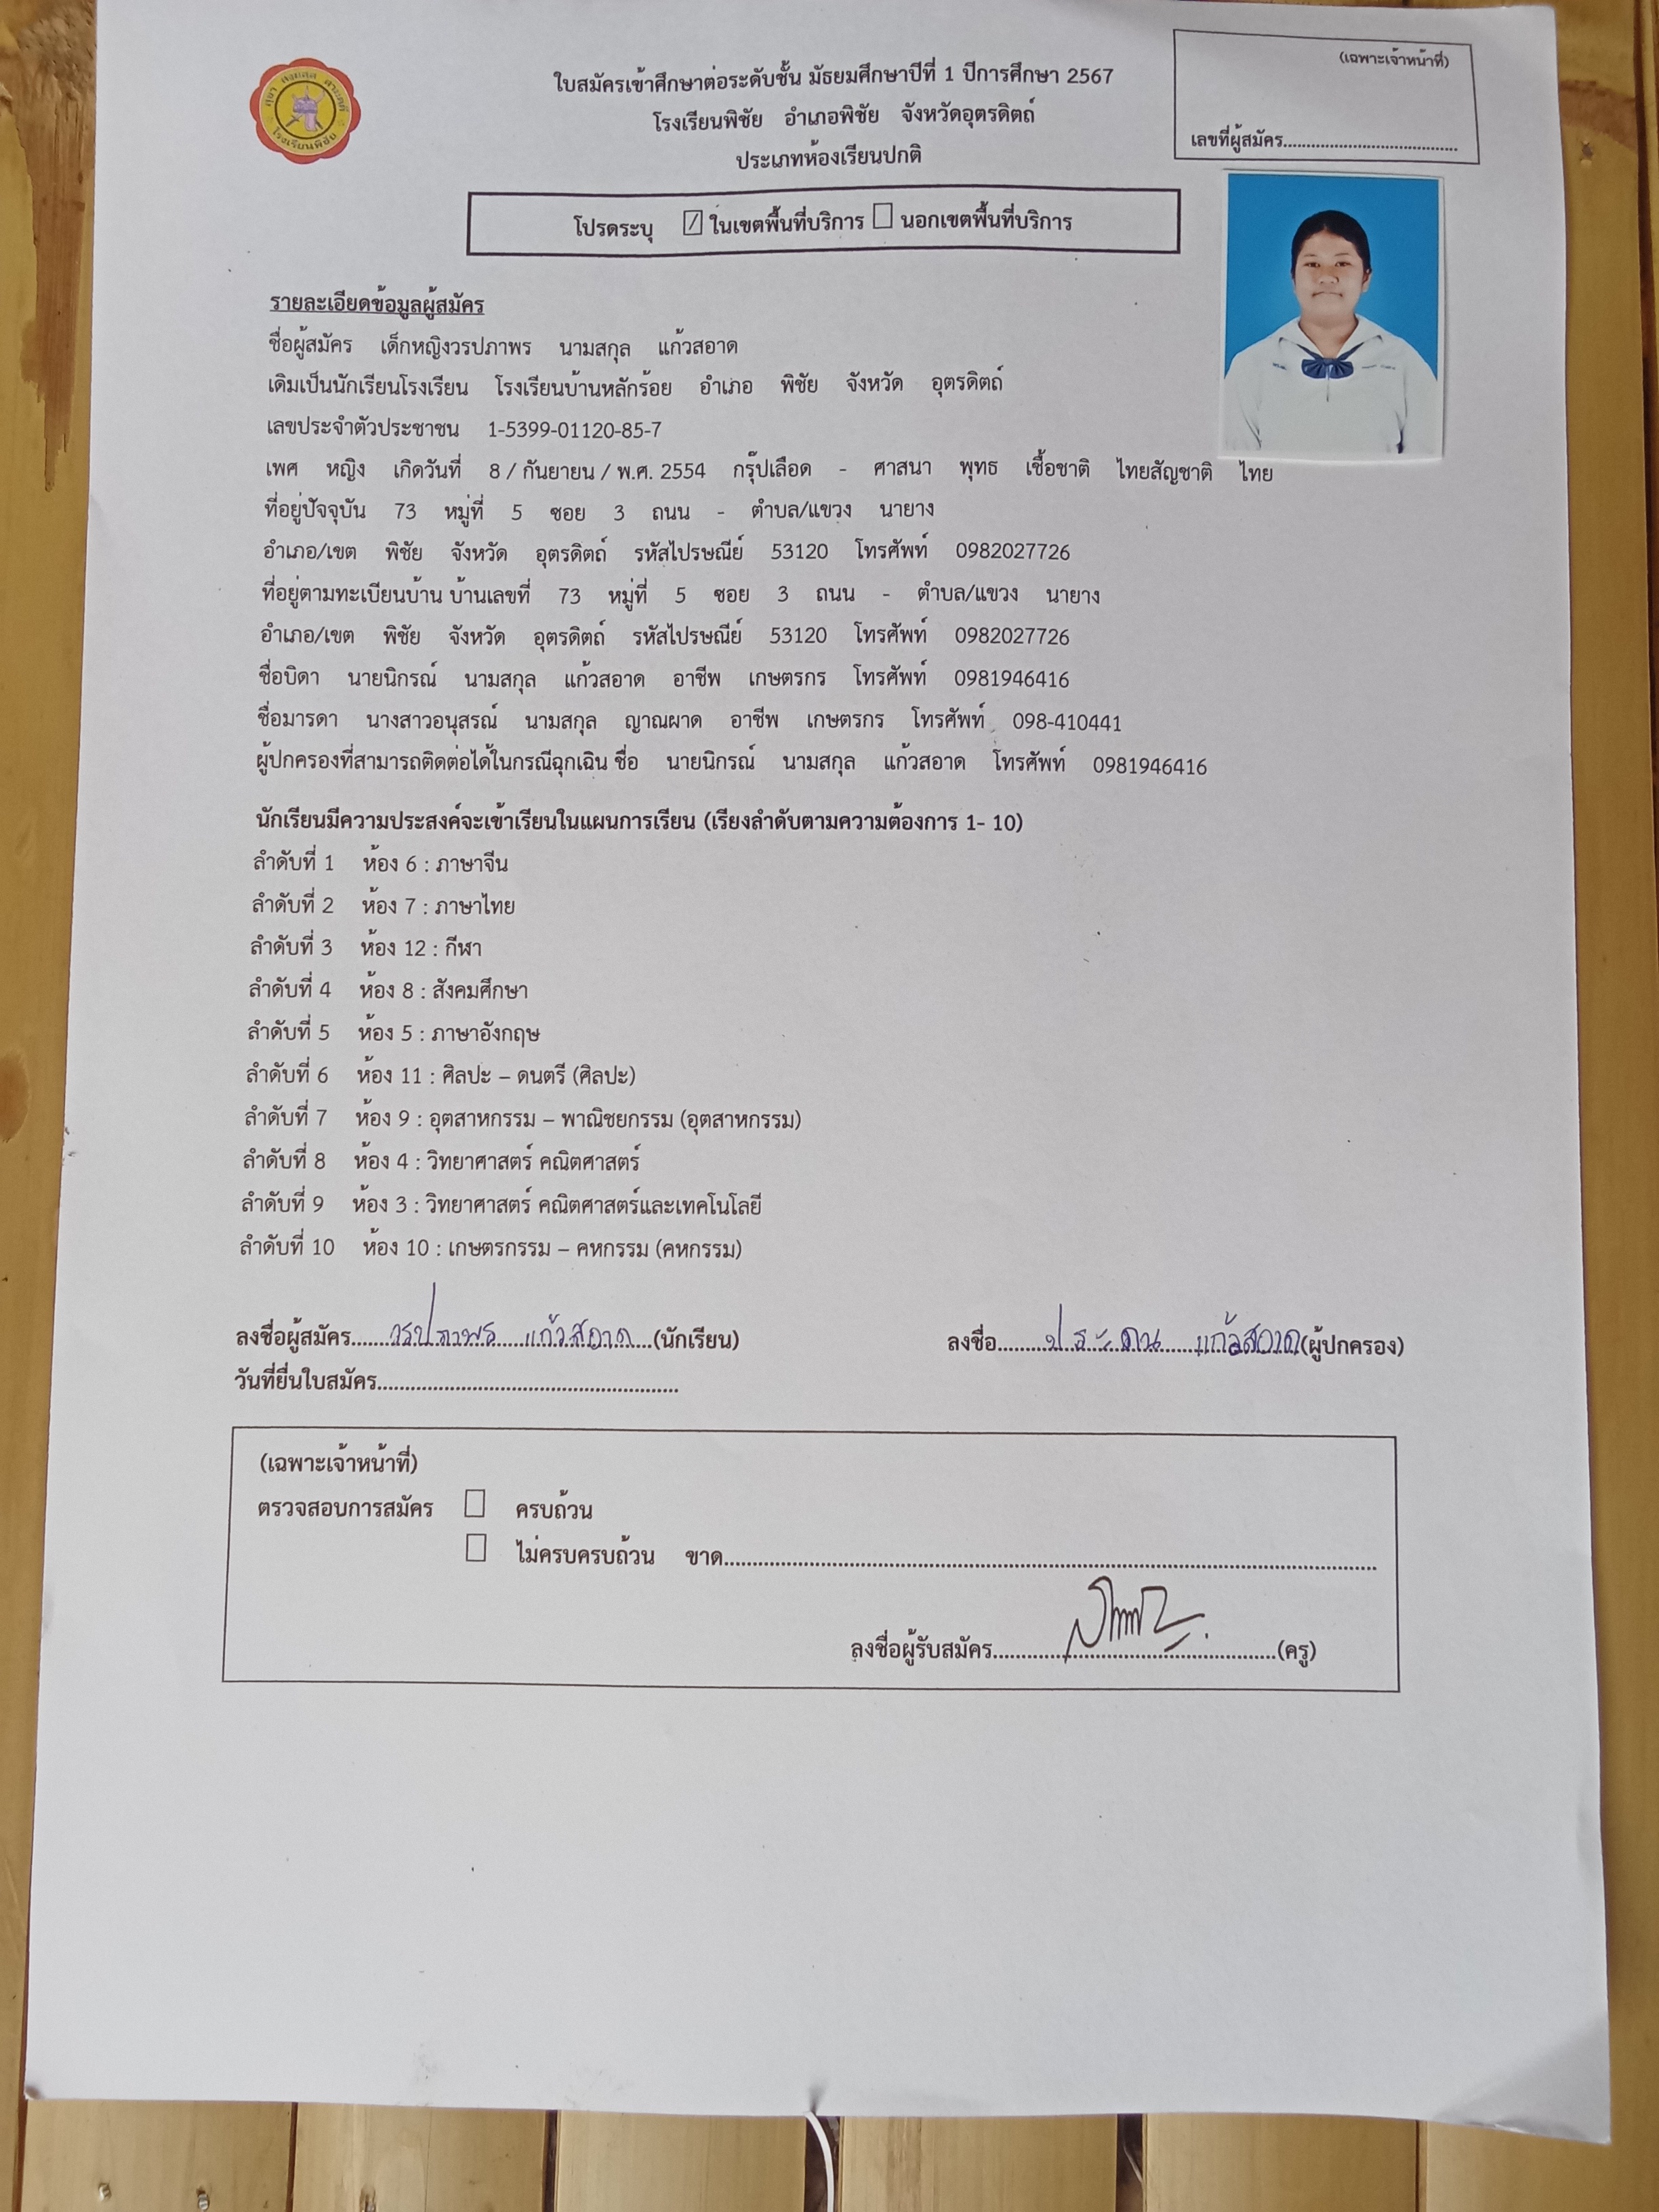 (เฉพาะเจ้าหน้าที่)
ใบสมัครเข้าศึกษาต่อระดับชั้น มัธยมศึกษาปีที่ 1 ปีการศึกษา 2567
โรงเรียนพิชัย อำเภอพิชัย จังหวัดอุตรดิตถ์
เลขที่ผู้สมัคร....................................
ประเภทห้องเรียนปกติ
โรงเรียนพิชัย
โปรดระบุ ☑ ในเขตพื้นที่บริการ ☐ นอกเขตพื้นที่บริการ
รายละเอียดข้อมูลผู้สมัคร
ชื่อผู้สมัคร เด็กหญิงวรปภาพร นามสกุล แก้วสอาด
เดิมเป็นนักเรียนโรงเรียน โรงเรียนบ้านหลักร้อย อำเภอ พิชัย จังหวัด อุตรดิตถ์
เลขประจำตัวประชาชน 1-5399-01120-85-7
เพศ หญิง เกิดวันที่ 8 / กันยายน / พ.ศ. 2554 กรุ๊ปเลือด - ศาสนา พุทธ เชื้อชาติ ไทยสัญชาติ ไทย
ที่อยู่ปัจจุบัน 73 หมู่ที่ 5 ซอย 3 ถนน - ตำบล/แขวง นายาง
อำเภอ/เขต พิชัย จังหวัด อุตรดิตถ์ รหัสไปรษณีย์ 53120 โทรศัพท์ 0982027726
ที่อยู่ตามทะเบียนบ้าน บ้านเลขที่ 73 หมู่ที่ 5 ซอย 3 ถนน - ตำบล/แขวง นายาง
อำเภอ/เขต พิชัย จังหวัด อุตรดิตถ์ รหัสไปรษณีย์ 53120 โทรศัพท์ 0982027726
ชื่อบิดา นายนิกรณ์ นามสกุล แก้วสอาด อาชีพ เกษตรกร โทรศัพท์ 0981946416
ชื่อมารดา นางสาวอนุสรณ์ นามสกุล ญาณผาด อาชีพ เกษตรกร โทรศัพท์ 098-410441
ผู้ปกครองที่สามารถติดต่อได้ในกรณีฉุกเฉิน ชื่อ นายนิกรณ์ นามสกุล แก้วสอาด โทรศัพท์ 0981946416
นักเรียนมีความประสงค์จะเข้าเรียนในแผนการเรียน (เรียงลำดับตามความต้องการ 1- 10)
ลำดับที่ 1 ห้อง 6 : ภาษาจีน
ลำดับที่ 2 ห้อง 7 : ภาษาไทย
ลำดับที่ 3 ห้อง 12 : กีฬา
ลำดับที่ 4 ห้อง 8 : สังคมศึกษา
ลำดับที่ 5 ห้อง 5 : ภาษาอังกฤษ
ลำดับที่ 6 ห้อง 11 : ศิลปะ – ดนตรี (ศิลปะ)
ลำดับที่ 7 ห้อง 9 : อุตสาหกรรม – พาณิชยกรรม (อุตสาหกรรม)
ลำดับที่ 8 ห้อง 4 : วิทยาศาสตร์ คณิตศาสตร์
ลำดับที่ 9 ห้อง 3 : วิทยาศาสตร์ คณิตศาสตร์และเทคโนโลยี
ลำดับที่ 10 ห้อง 10 : เกษตรกรรม – คหกรรม (คหกรรม)
ลงชื่อผู้สมัคร......วรปภาพร....แก้วสอาด....(นักเรียน) ลงชื่อ.............แก้วสอาด(ผู้ปกครอง)
วันที่ยื่นใบสมัคร......................................................
(เฉพาะเจ้าหน้าที่)
ตรวจสอบการสมัคร ☐ ครบถ้วน
☐ ไม่ครบครบถ้วน ขาด....................................................................
ลงชื่อผู้รับสมัคร............................................(ครู)